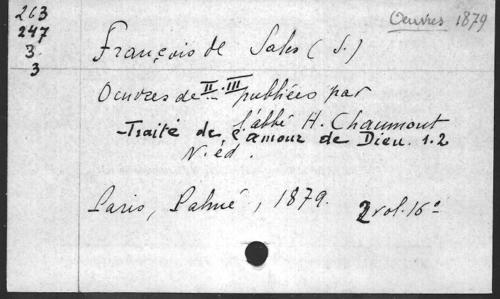 263
247
3
3
Oeuvres 1879
François de Sales (S.)
Oeuvres de II-III publiées par
l'abbé H. Chaumont
-Traité de l'amour de Dieu. 1.2
N. éd.
Paris, Palmé, 1879.
2 vol. 16°